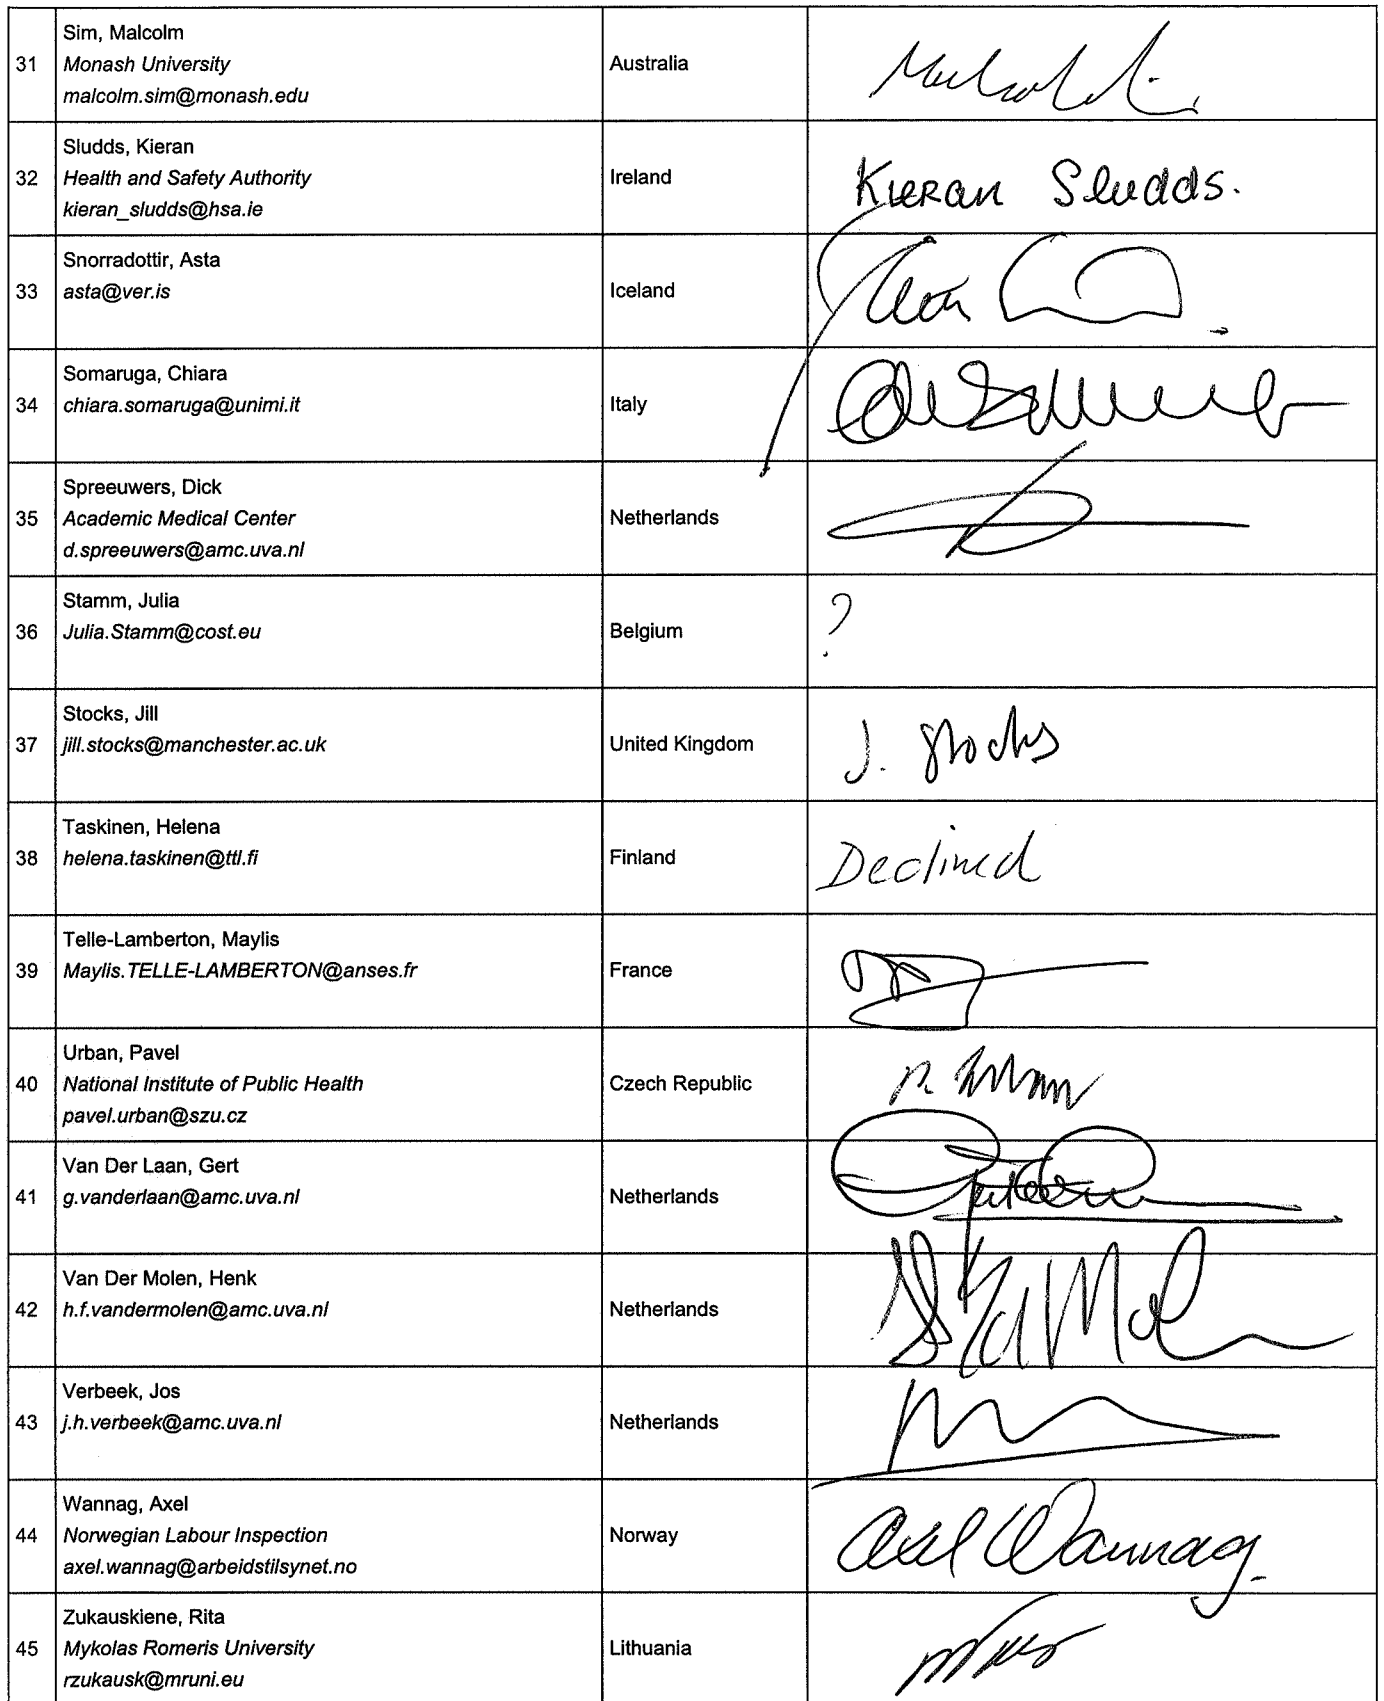 31
Sim, Malcolm
Monash University
malcolm.sim@monash.edu
Australia
32
Sludds, Kieran
Health and Safety Authority
kieran_sludds@hsa.ie
Ireland
Kieran Sludds.
33
Snorradottir, Asta
asta@ver.is
Iceland
34
Somaruga, Chiara
chiara.somaruga@unimi.it
Italy
35
Spreeuwers, Dick
Academic Medical Center
d.spreeuwers@amc.uva.nl
Netherlands
36
Stamm, Julia
Julia.Stamm@cost.eu
Belgium
?
37
Stocks, Jill
jill.stocks@manchester.ac.uk
United Kingdom
J. Stocks
38
Taskinen, Helena
helena.taskinen@ttl.fi
Finland
Declined
39
Telle-Lamberton, Maylis
Maylis.TELLE-LAMBERTON@anses.fr
France
40
Urban, Pavel
National Institute of Public Health
pavel.urban@szu.cz
Czech Republic
P. Urban
41
Van Der Laan, Gert
g.vanderlaan@amc.uva.nl
Netherlands
42
Van Der Molen, Henk
h.f.vandermolen@amc.uva.nl
Netherlands
43
Verbeek, Jos
j.h.verbeek@amc.uva.nl
Netherlands
44
Wannag, Axel
Norwegian Labour Inspection
axel.wannag@arbeidstilsynet.no
Norway
Axel Wannag
45
Zukauskiene, Rita
Mykolas Romeris University
rzukausk@mruni.eu
Lithuania